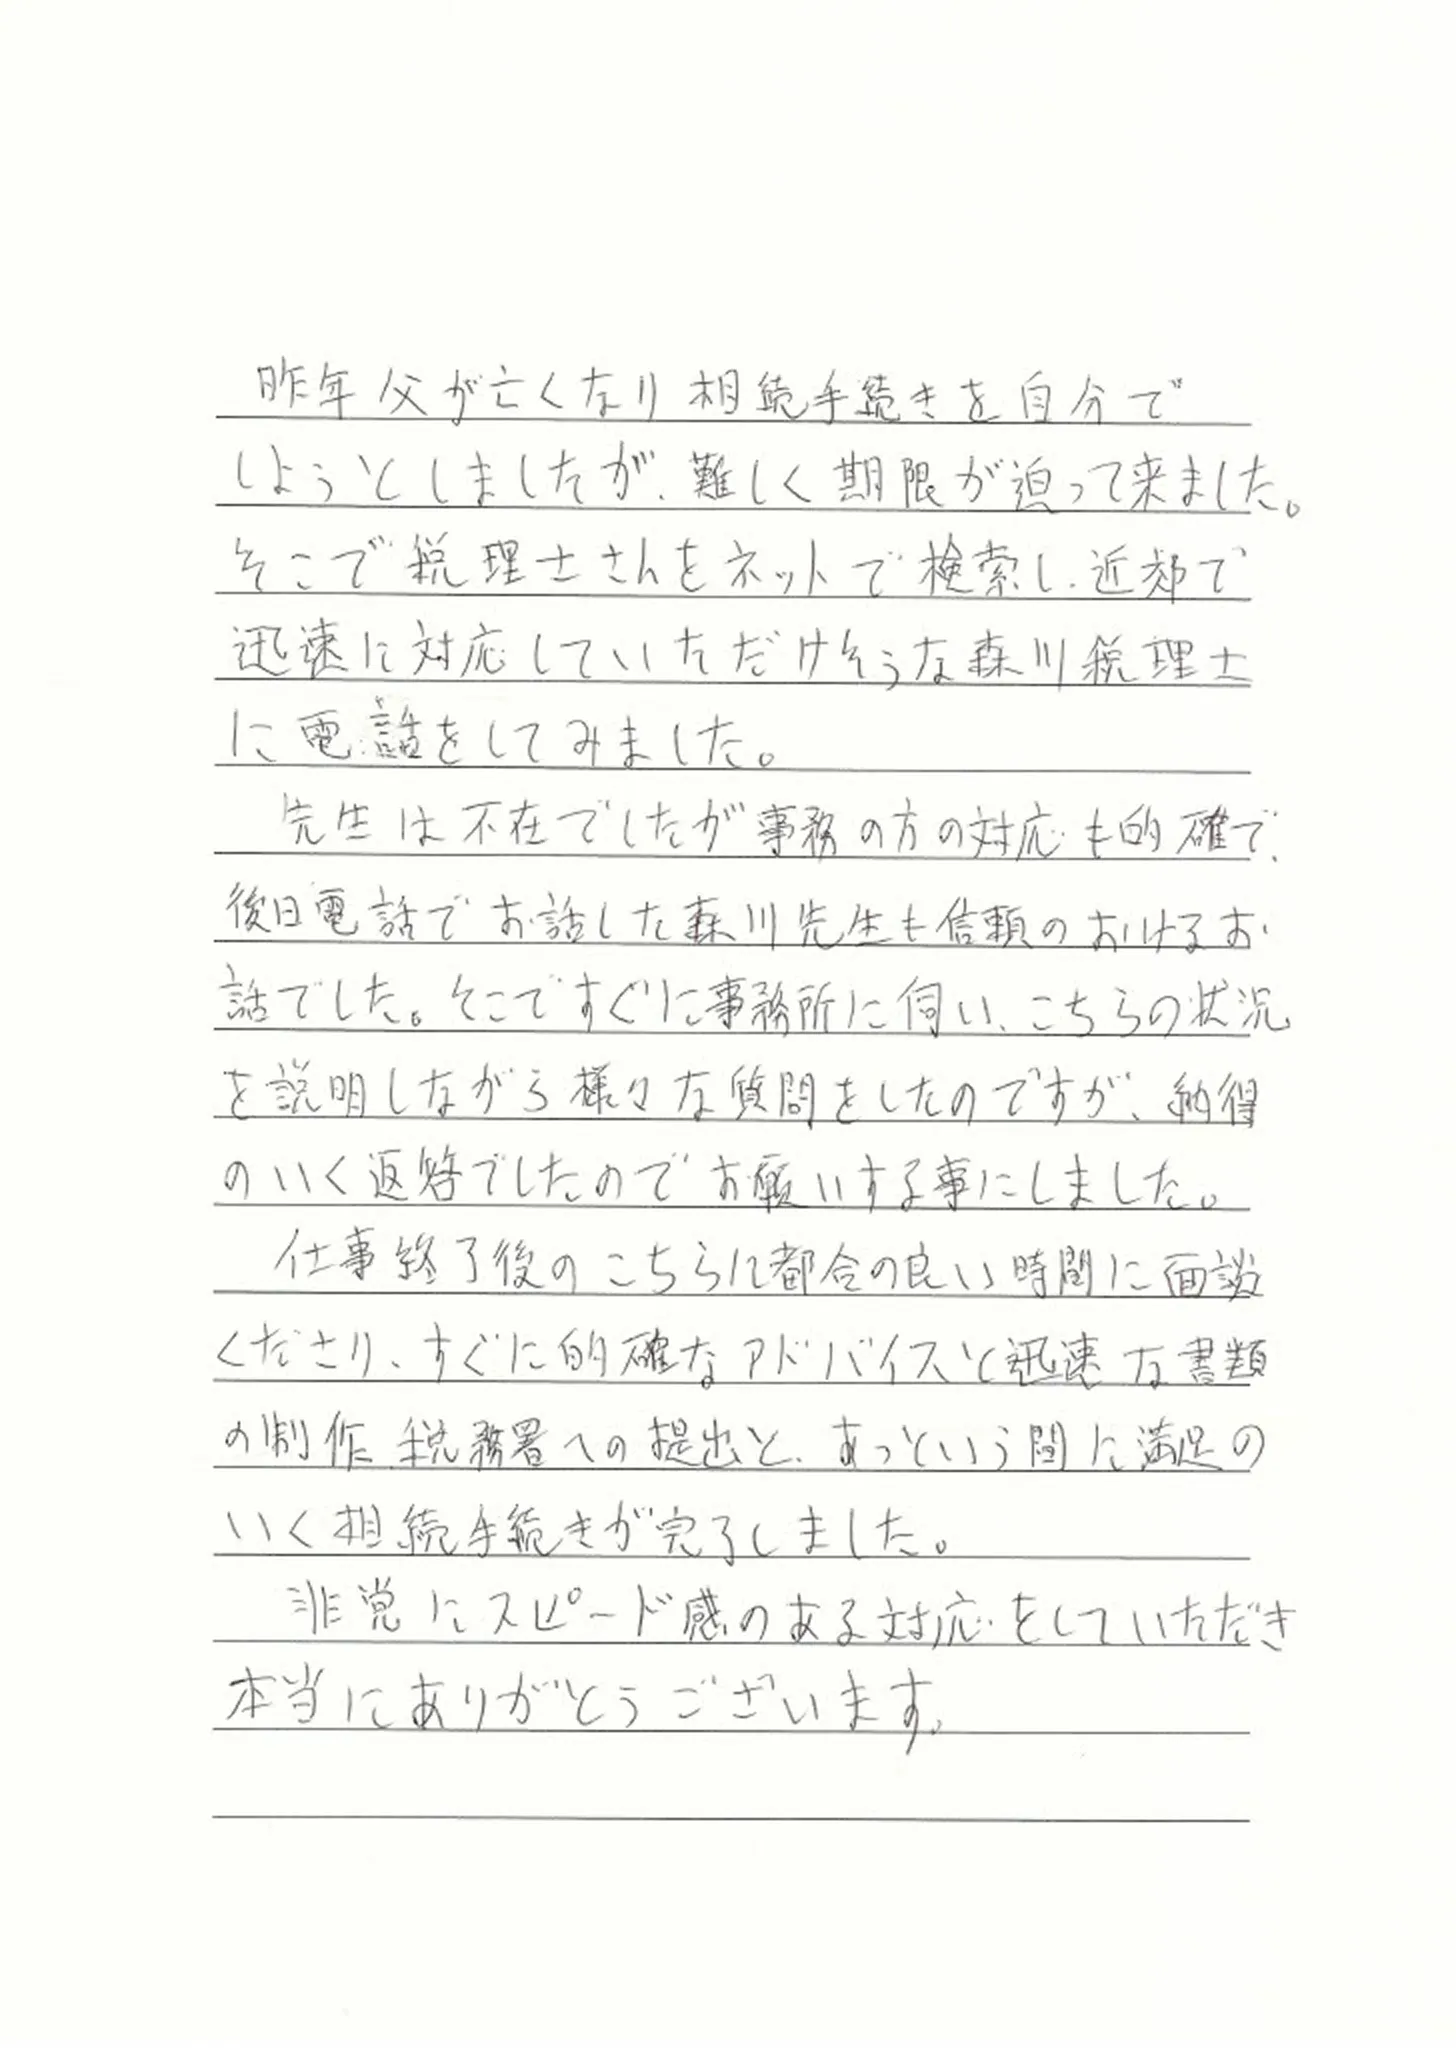 昨年父が亡くなり相続手続きを自分で
しようとしましたが、難しく期限が迫って来ました。
そこで税理士さんをネットで検索し、近郊で
迅速に対応していただけそうな森川税理士
に電話をしてみました。
先生は不在でしたが事務の方の対応も的確で、
後日電話でお話した森川先生も信頼のおけるお
話でした。そこですぐに事務所に伺い、こちらの状況
を説明しながら様々な質問をしたのですが、納得
のいく返答でしたのでお願いする事にしました。
仕事終了後のこちらに都合の良い時間に面談
くださり、すぐに的確なアドバイスと迅速な書類
の制作、税務署への提出と、あっという間に満足の
いく相続手続きが完了しました。
非常にスピード感のある対応をしていただき
本当にありがとうございます。